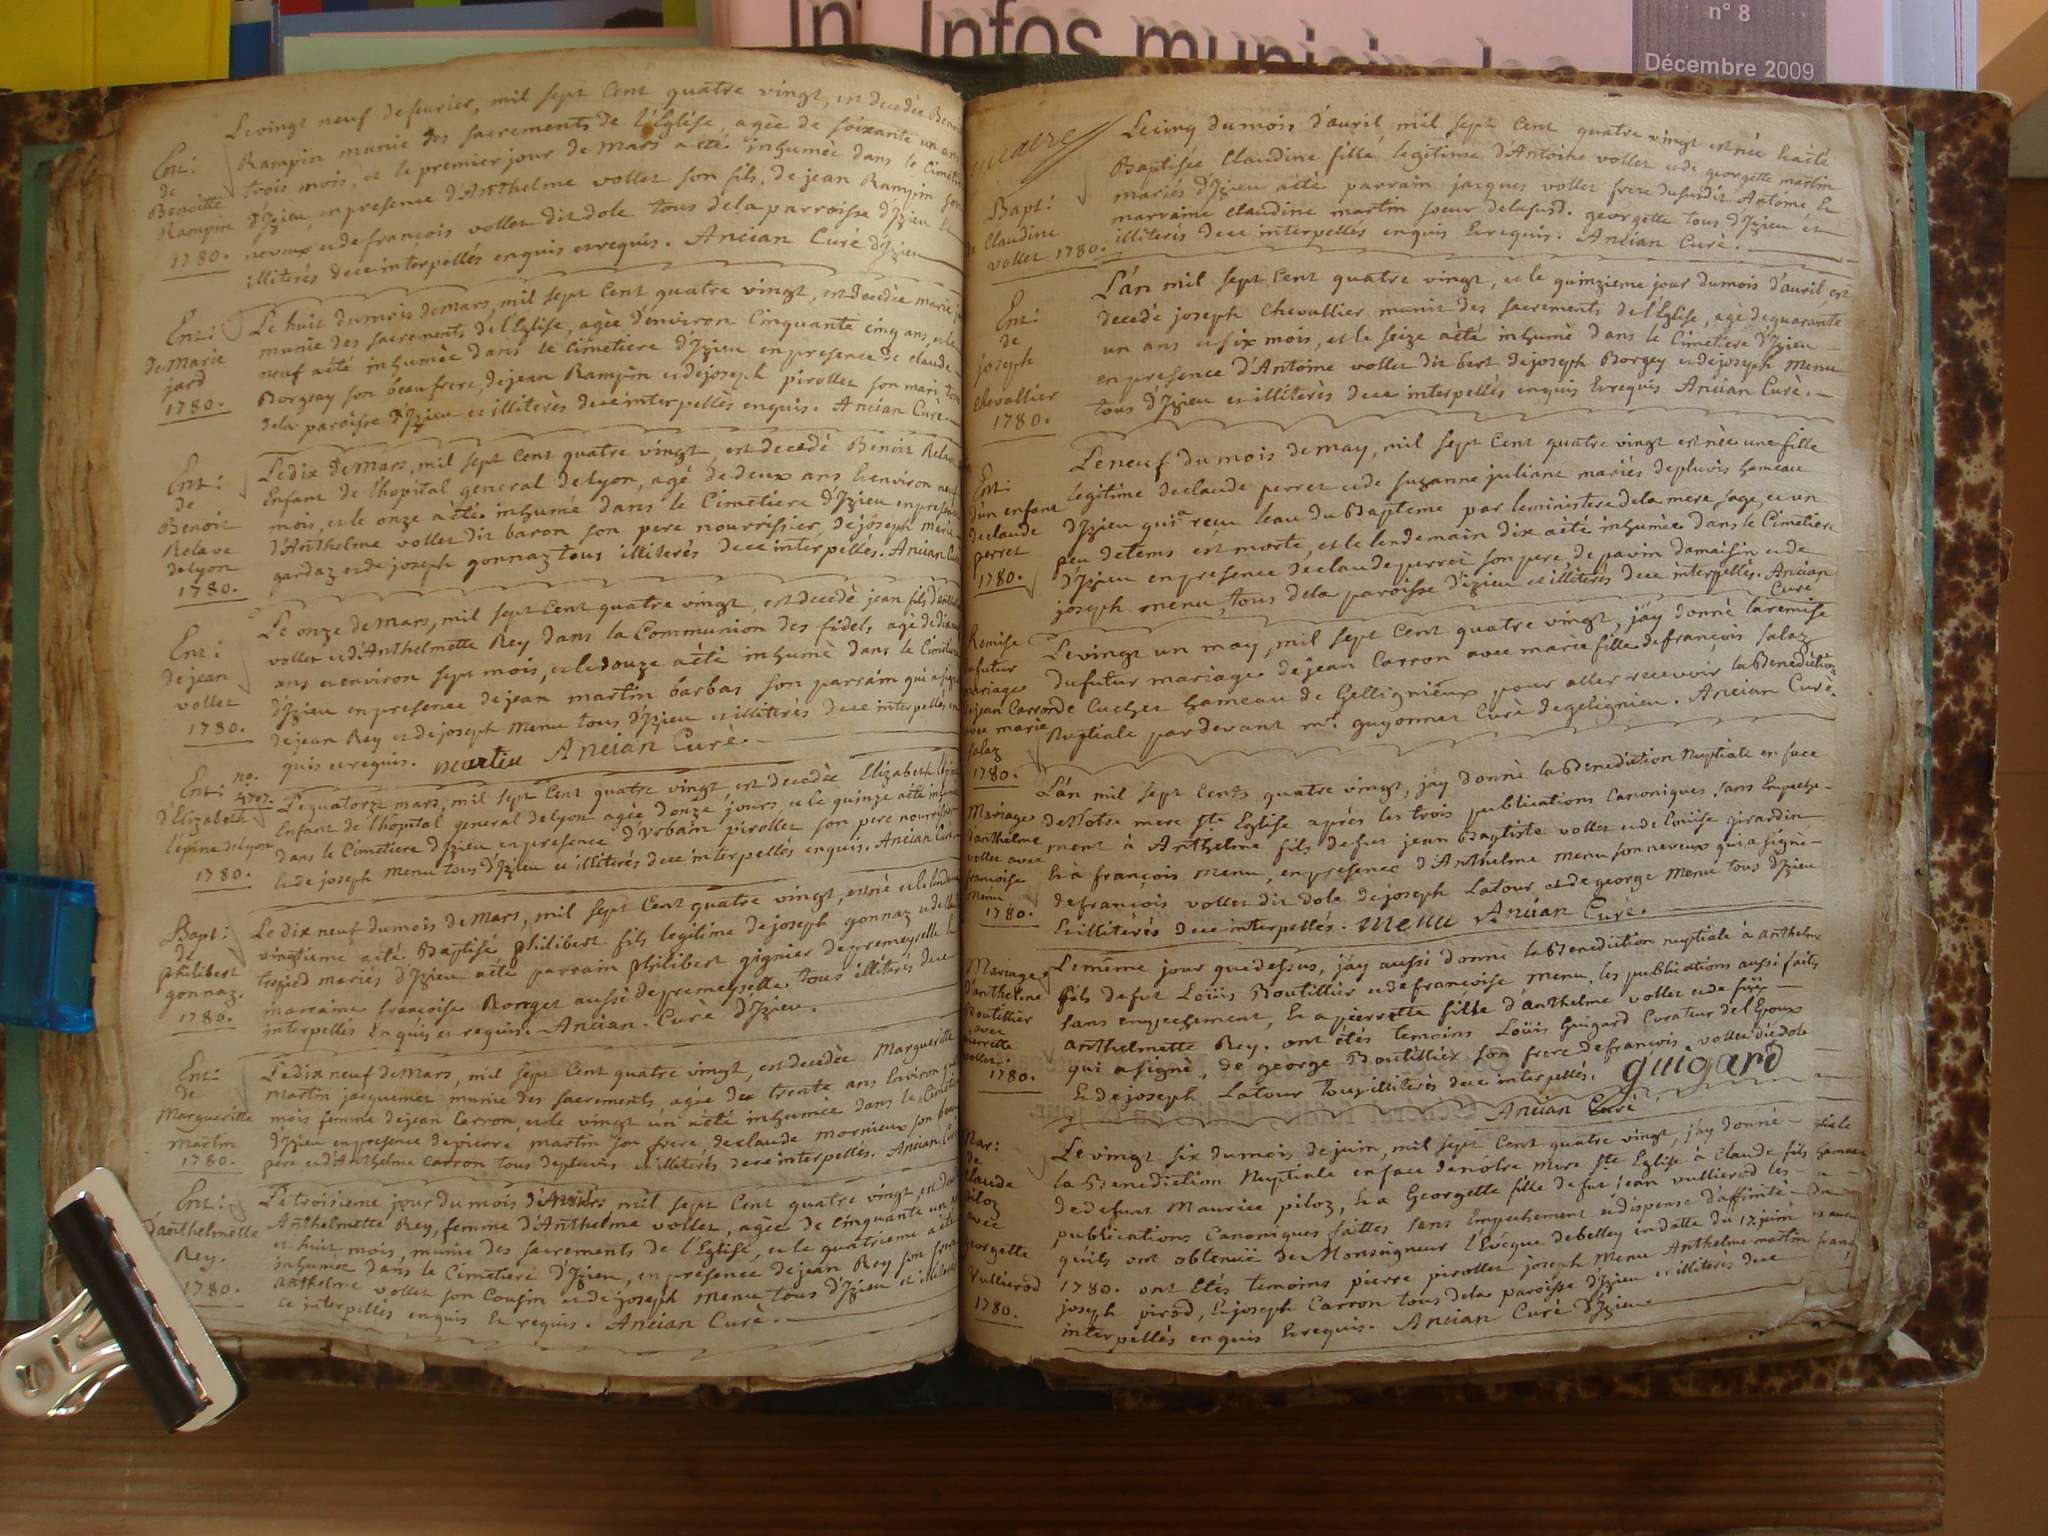 Infos municipales
n° 8
Décembre 2009
Le vingt neuf de feurier, mil sept Cent quatre vingt, est decedée
Rampin munie des sacrements de l'Eglise, agée de soixante un ans
trois mois, et le premier jour de mars a été inhumée dans le
d'Izieu en presence d'Anthelme vollet son fils, de jean Rampin son
neveux et de françois vollet dit dole tous de la parroisse d'Izieu
illiterés de ce interpellés enquis et requis. Ancian Curé d'Izieu
Ent:
de
Benoitte
Rampin
1780.
Le huit du mois de mars, mil sept Cent quatre vingt, est decedée marie
munie des sacrements de l'Eglise, agée d'environ Cinquante Cinq ans, et le
neuf a été inhumée dans le Cimetiere d'Izieu en presence de claude
Borgeay son beaufrere, de jean Rampin et de joseph pirollet son mari, tous
de la paroisse d'Izieu et illiterés de ce interpellés enquis. Ancian Curé.
Ent:
de Marie
jard
1780.
Le dix de Mars, mil sept Cent quatre vingt, est decedé Benoit
Enfant de l'hopital general de Lyon, agé de deux ans & environ neuf
mois, et le onze a été inhumé dans le Cimetiere d'Izieu en
d'Anthelme vollet dit baron son pere nourrissier, de joseph
gardaz et de joseph gonnaz tous illiterés de ce interpellés. Ancian
Ent:
de
Benoit
Relave
de lyon
1780.
Le onze de Mars, mil sept Cent quatre vingt, est decedé jean fils
vollet et d'Anthelmette Rey dans la Communion des fidels, agé de
ans et environ sept mois, et le douze a été inhumé dans le
d'Izieu en presence de jean martin barbas son parrain qui a
de jean Rey et de joseph Menu tous d'Izieu et illiterés de ce interpellés
quis et requis. martin Ancian Curé.
Ent:
de jean
vollet
1780.
Le quatorze mars, mil sept Cent quatre vingt est decedée Elizabeth
Enfant de l'hopital general de Lyon agée d'onze jours, et le quinze a été
dans le Cimetiere d'Izieu en presence d'Urbain pirollet son pere
& de joseph Menu tous d'Izieu et illiterés de ce interpellés enquis. Ancian Curé
Ent: no.
d'Elizabeth
l'epine de lyon
1780.
Le dix neuf du mois de Mars, mil sept Cent quatre vingt, est né et le
vingtieme a été Baptisé philibert fils legitime de joseph gonnaz et de
mariés d'Izieu a été parrain philibert gignier de premeyselle
marraine françoise Borget aussi de premeyselle tous illiterés de ce
interpellés Enquis et requis. Ancian Curé d'Izieu.
Bapt:
de
philibert
gonnaz.
1780.
Le dix neuf de Mars, mil sept Cent quatre vingt, est decedée Marguerite
Martin jacquemet munie des sacrements, agée de trente ans & environ
mois femme de jean Carron, et le vingt un a été inhumée dans le
d'Izieu en presence de pierre martin son frere de claude mornieux son beau
pere et d'Anthelme Carron tous de pluvis et illiterés de ce interpellés. Ancian
Ent:
de
Margueritte
Martin
1780.
Le troisieme jour du mois mil sept Cent quatre vingt, est
Anthelmette Rey, femme d'Anthelme vollet, agée de Cinquante un
et huit mois, munie des sacrements de l'Eglise, et le quatrieme a été
inhumée dans le Cimetiere d'Izieu, en presence de jean Rey son frere
Anthelme vollet son Cousin et de joseph Menu tous d'Izieu et
ce interpellés enquis & requis. Ancian Curé.
Ent:
d'anthelmette
Rey.
1780.
Le cinq du mois d'auril mil sept Cent quatre vingt est née & a été
Baptisée Claudine fille legitime d'Antoine vollet et de georgette martin
mariés d'Izieu a été parrain jacques vollet frere du susdit Antoine &
marraine Claudine martin soeur de la susd. georgette tous d'Izieu et
illiterés de ce interpellés enquis & requis. Ancian Curé.
Bapt:
de Claudine
vollet 1780.
L'an mil sept Cent quatre vingt, et le quinzieme jour du mois d'auril est
decedé joseph Chevallier, munit des sacrements de l'Eglise, agé de quarante
un ans et six mois, et le seize a été inhumé dans le Cimetiere d'Izieu
en presence d'Antoine vollet dit bert, de joseph Borgey et de joseph Menu
tous d'Izieu et illiterés de ce interpellés enquis & requis Ancian Curé.
Ent:
de
joseph
Chevallier
1780.
Le neuf du mois de may, mil sept Cent quatre vingt est née une fille
legitime de claude perret et de suzanne juliant mariés de pluvis hameau
d'Izieu qui a reçu l'eau du Bapteme par le ministere de la mere sage, et un
peu de tems est morte, et le lendemain dix a été inhumée dans le Cimetiere
d'Izieu en presence de claude perret son pere, de pavin damaisin et de
joseph menu, tous de la paroisse d'Izieu et illiterés de ce interpellés. Ancian
Curé
Ent:
d'un enfant
de claude
perret
1780.
Le vingt un may, mil sept Cent quatre vingt, j'ay donné la remise
du futur mariage de jean Carron avec marie fille de françois salaz
de Cuchet hameau de Gellignieux pour aller recevoir la Benediction
Nuptiale par devant mr. guyonnet Curé de gelignieu. Ancian Curé.
Remise
futur
mariage
de jean Carron
avec marie
salaz
1780.
L'an mil sept Cents quatre vingt, j'ay donné la Benediction Nuptiale en face
de Notre mere ste. Eglise aprés les trois publications Canoniques sans Empeche-
ment à Anthelme fils de fut jean Baptiste vollet et de louise girardin
& à françois menu, en presence d'Anthelme menu son neveux qui a signé
de françois vollet dit dole de joseph Latour et de george Menu tous d'Izieu
& illiterés de ce interpellés. menu Ancian Curé.
Mariage
d'anthelme
vollet avec
françoise
menu
1780.
Le même jour que dessus, j'ay aussi donné la Benediction nuptiale à Anthelme
fils de fut Loüis Boutillier et de françoise menu, les publications aussi faites
sans empechement, & a pierrette fille d'anthelme vollet et de
anthelmette Rey. ont étés temoins Loüis guigard Curateur de l'Epoux
qui a signé, de george Boutillier son frere de françois vollet dit dole
& de joseph Latour tous illiterés de ce interpellés. guigard
Ancian Curé
Mariage
d'anthelme
Boutillier
avec
pierrette
vollet.
1780.
Le vingt six du mois de juin, mil sept Cent quatre vingt, j'ay donné
la Benediction Nuptiale en face de notre mere ste Eglise à Claude fils
de defunt Maurice piloz, & a Georgette fille de fut jean vullierod les
publications Canoniques faittes sans Empechement et dispense d'affinité
qu'ils ont obtenuë de Monseigneur l'Evêque de belley en datte du 17. juin
1780. ont Etés temoins pierre pirollet joseph Menu Anthelme martin
joseph pirod, & joseph Carron tous de la paroisse d'Izieu et illiterés de ce
interpellés enquis & requis. Ancian Curé d'Izieu
Mar:
de
Claude
piloz
avec
georgette
Vullierod
1780.